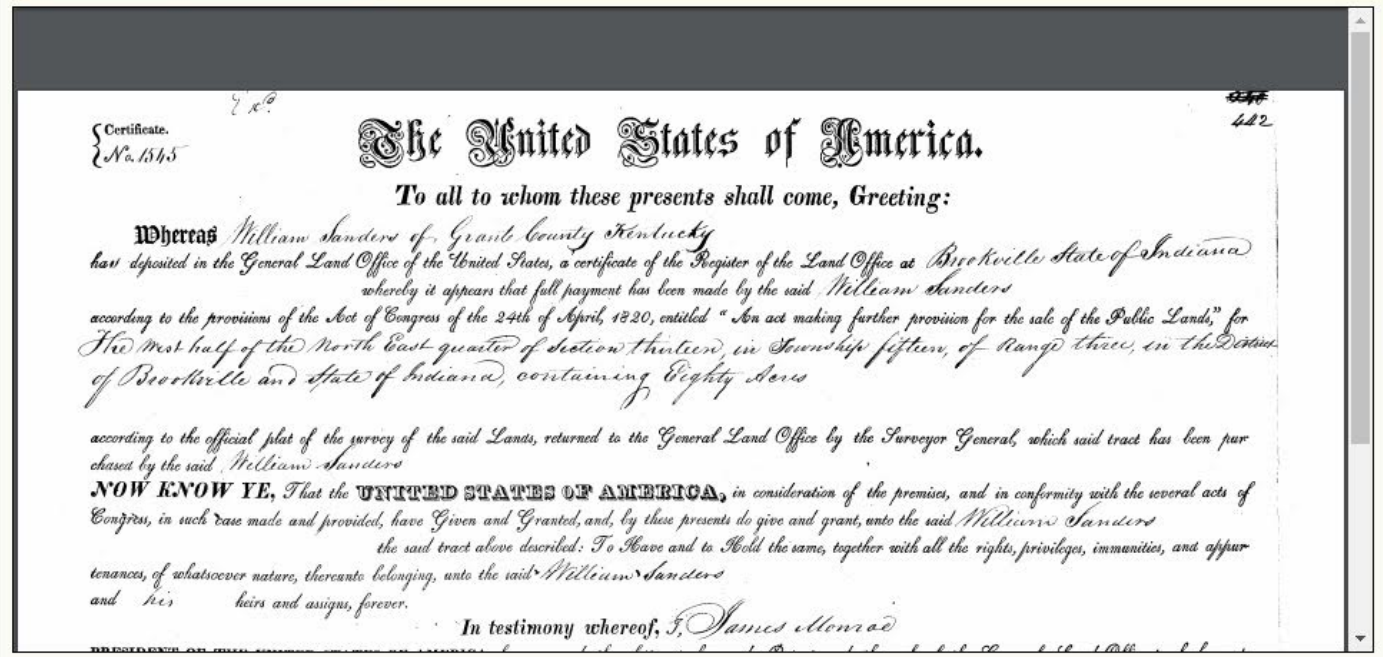 442
Certificate.
No. 1545
The United States of America.
To all to whom these presents shall come, Greeting:
Whereas William Sanders of Grant County Kentucky
has deposited in the General Land Office of the United States, a certificate of the Register of the Land Office at Brookville State of Indiana
whereby it appears that full payment has been made by the said William Sanders
according to the provisions of the Act of Congress of the 24th of April, 1820, entitled "An act making further provision for the sale of the Public Lands," for
The West half of the North East quarter of Section thirteen, in Township fifteen, of Range three, in the District
of Brookville and State of Indiana, containing Eighty Acres
according to the official plat of the survey of the said Lands, returned to the General Land Office by the Surveyor General, which said tract has been pur
chased by the said William Sanders
NOW KNOW YE, That the UNITED STATES OF AMERICA, in consideration of the premises, and in conformity with the several acts of
Congress, in such case made and provided, have Given and Granted, and, by these presents do give and grant, unto the said William Sanders
the said tract above described: To Have and to Hold the same, together with all the rights, privileges, immunities, and appur
tenances, of whatsoever nature, thereunto belonging, unto the said William Sanders
and his heirs and assigns, forever.
In testimony whereof, I, James Monroe
PRESIDENT OF THE UNITED STATES OF AMERICA